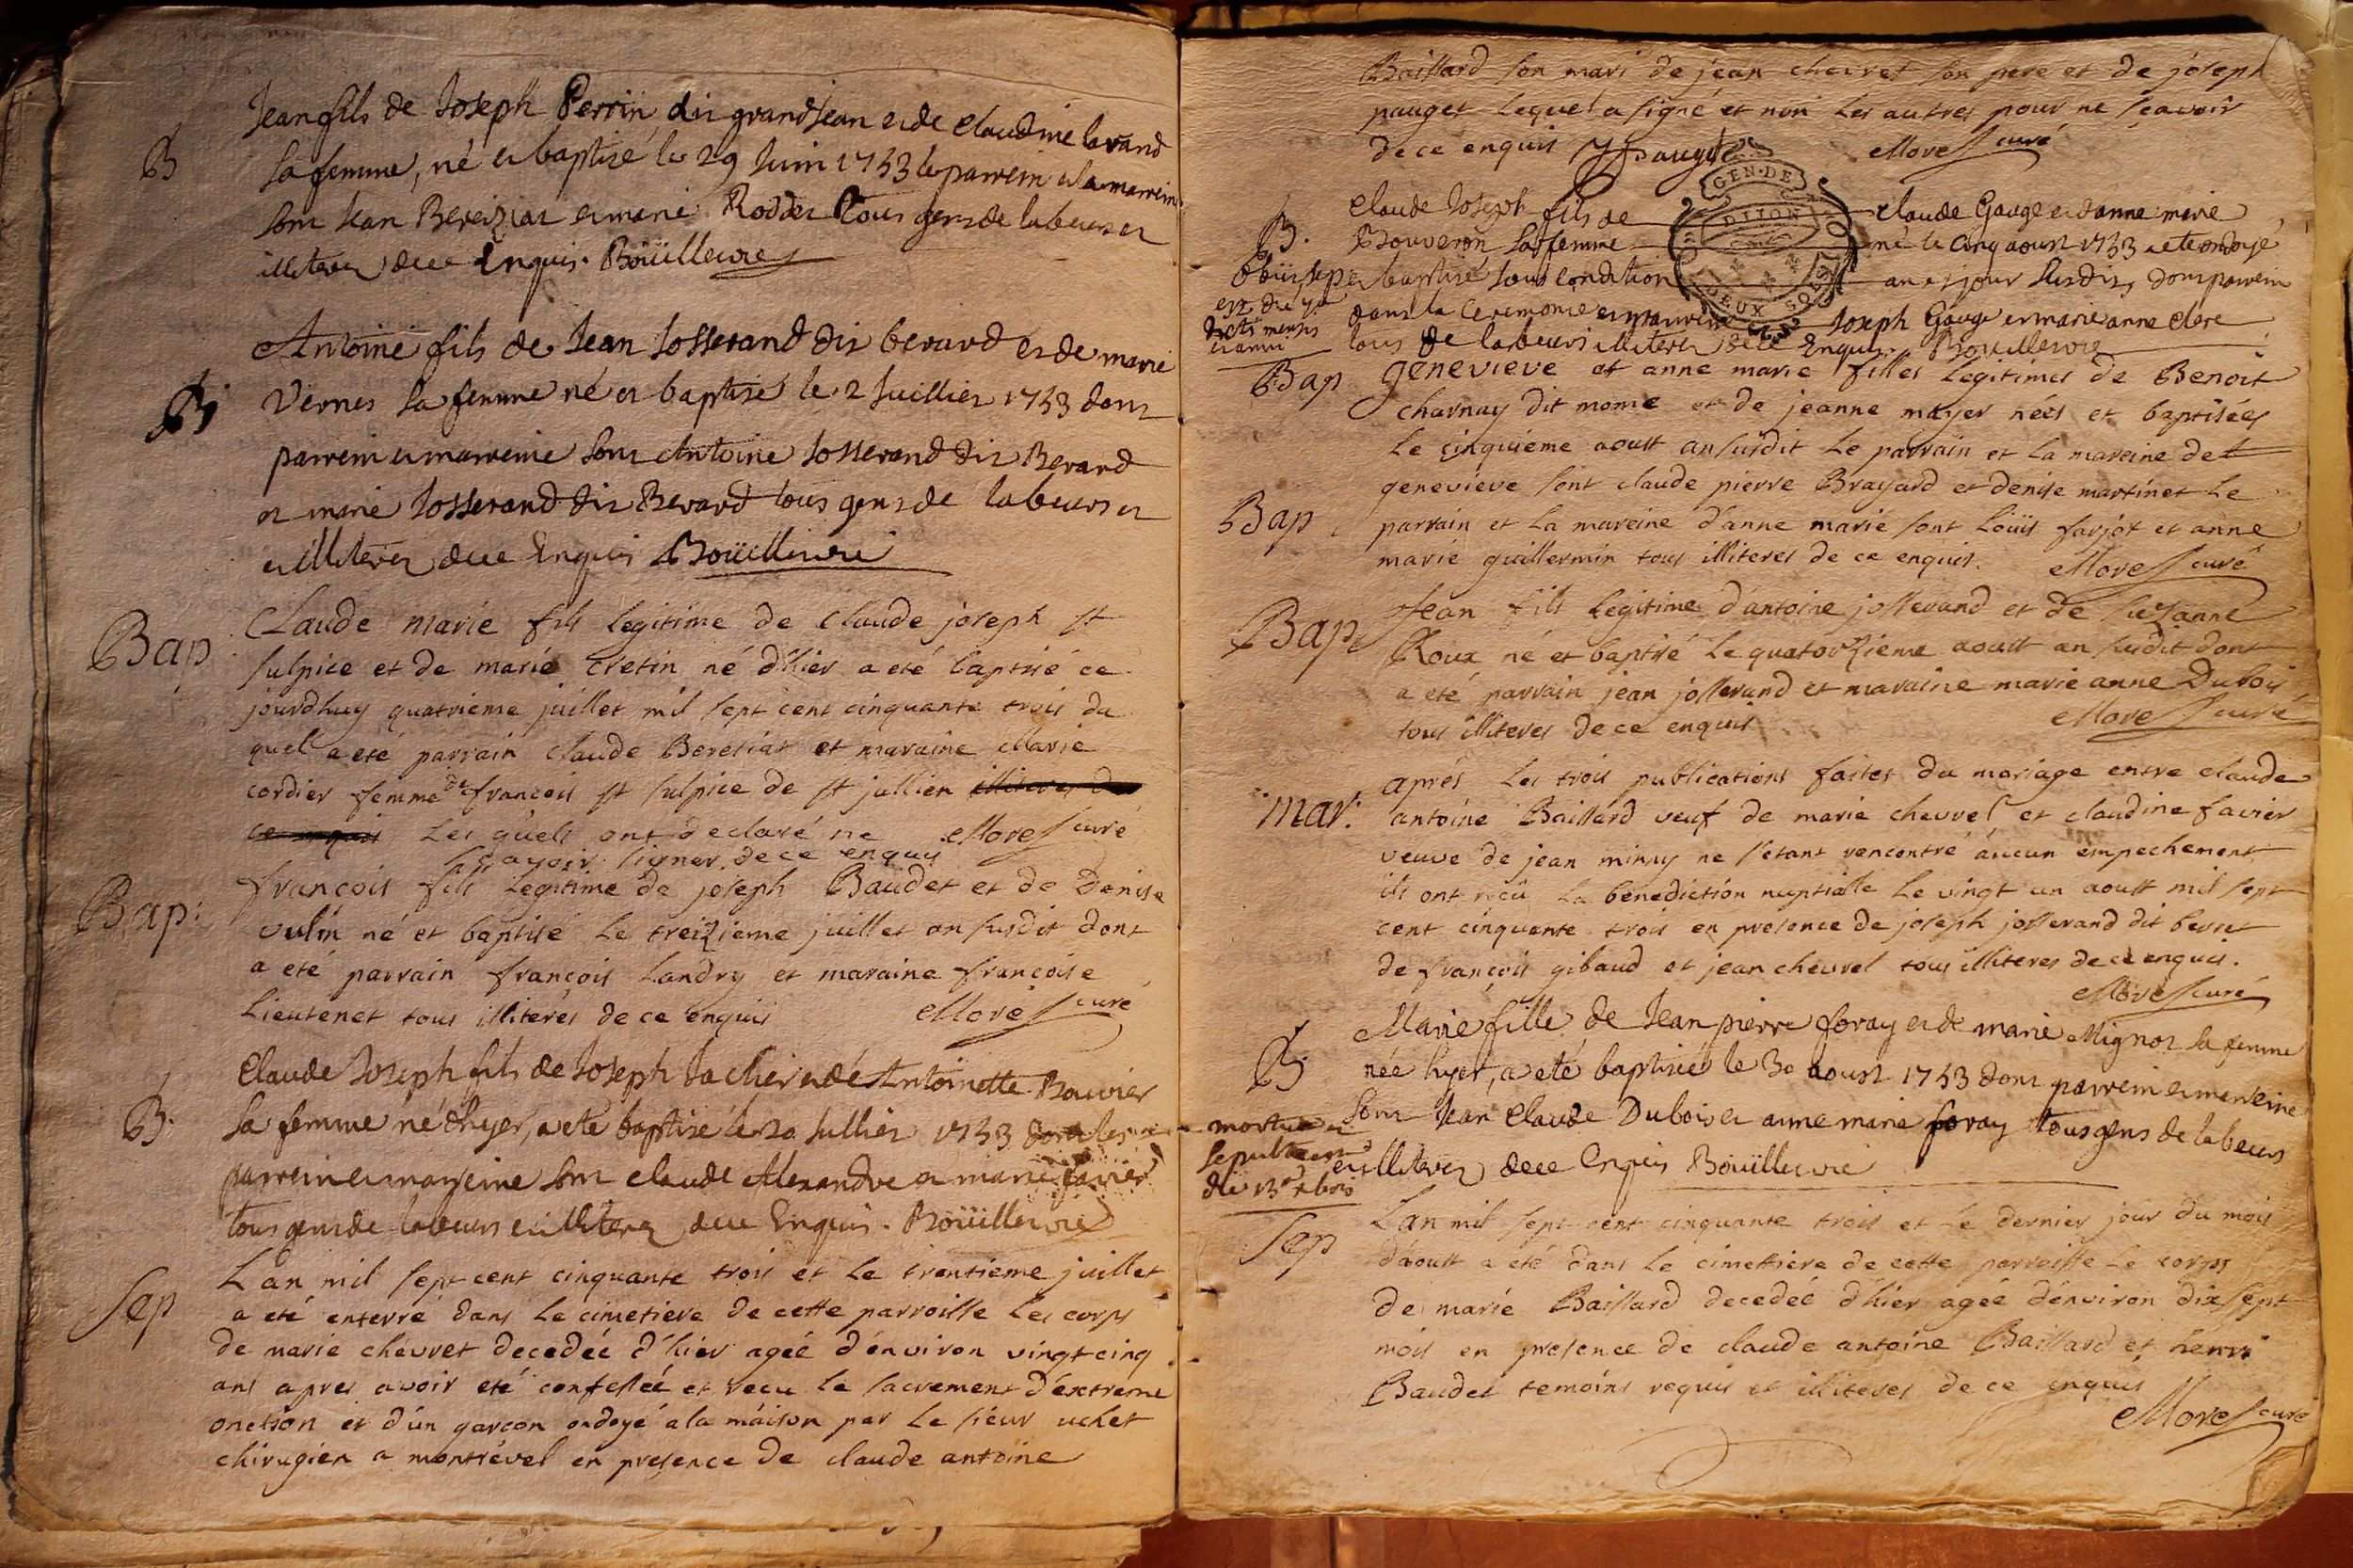 B
Jean fils de Joseph Perrin dit grandjean et de Claudine lavand
sa femme, né et baptisé le 29 Juin 1753 le parrein et la marreine
sont Jean Bereiziat et marie Roddet tous gens de labeurs et
illiteres de ce Enquis. Boüillevre
B
Antoine fils de Jean Josserand dit berard et de marie
Vernes sa femme né et baptisé le 2 Juillier 1753 dont
parrein et marreine sont Antoine Josserand dit Berard
et marie Josserand dit Berard tous gens de labeurs et
et illiteres de ce Enquis Boüillevre
Bap
Claude marie fils legitime de claude joseph st
sulpice et de marie cretin né d'hier a eté baptisé ce
jourdhuy quatrieme juillet mil sept cent cinquante trois du
quel a eté parrain claude Beresiat et maraine Marie
cordier femme de françois st sulpice de st jullien
Les quels ont declaré ne Morel curé
sçavoir signer de ce enquis
Bap:
françois fils legitime de joseph Baudet et de Denise
vulin né et baptisé le treizieme juillet an susdit dont
a eté parrain françois Landry et maraine françoise
Lieutenet tous illiterés de ce enquis Morel curé
B.
Claude Joseph fils de Joseph Vacher et de Antoinette Bouvier
sa femme né d'hyer, a ete baptisé le 20 Jullier 1753
parrein et marreine sont claude Alexandre et marie favier
tous gens de labeurs et illiteres de ce Enquis. Boüillevre
Sep
L'an mil sept cent cinquante trois et le trentieme juillet
a eté enterré dans le cimetiere de cette parroisse les corps
de marie chevret decedée d'hier agée d'environ vingt cinq
ans apres avoir eté confessée et recu le sacrement d'extreme
onction et d'un garçon ondoyé a la maison par le sieur uchet
chirugien a montrével en presence de claude antoine
Baillard son mari de jean chevret son pere et de joseph
pauget lequel a signé et non les autres pour ne sçavoir
de ce enquis J pauget Morel curé
GEN. DE DIJON
DEUX SOLS
B.
Claude Joseph fils de claude Gauge et d'anne marie
Bouveron sa femme né le cinq aoust 1753 a ete ondoyé
et baptisé sous condition an et jour susdit, dont parrein
dans la Ceremonie et marreine Joseph Gauge et marie anne clere
tous de labeurs illiteres de ce Enquis. Boüillevre
Bap
genevieve et anne marie filles legitimes de Benoit
charnay dit mome et de jeanne mayer nées et baptisées
le cinquieme aoust an susdit le parrain et la mareine de
genevieve sont claude pierre Brayard et denise martinet le
Bap
parrain et la mareine d'anne marie sont Loüis farjot et anne
marie guillermin tous illiteres de ce enquis. Morel curé
Bap
Jean fils legitime d'antoine josserand et de suzanne
Roux né et baptisé le quatorzieme aoust an susdit dont
a eté parrain jean josserand et maraine marie anne Dubois
tous illiteres de ce enquis Morel curé
mar:
aprés les trois publications faites du mariage entre claude
antoine Baillard veuf de marie chevrel et claudine favier
veuve de jean minny ne s'etant rencontré aucun empechement
ils ont reçû la benediction nuptialle le vingt un aoust mil sept
cent cinquante trois en presence de joseph josserand dit
de françois gibaud et jean chevrel tous illiteres de ce enquis.
Morel curé
B
Marie fille de Jean pierre foray et de marie Mignot sa femme
née hyer, a eté baptisée le 30 aoust 1753 dont parrein et marreine
sont Jean Claude Dubois et anne marie foray tous gens de labeurs
et illiteres de ce Enquis Boüillevre
Sep
L'an mil sept cent cinquante trois et le dernier jour du mois
d'aoust a eté dans le cimettiere de cette parroisse le corps
de marie Baillard decedée d'hier agée d'environ dix sept
mois en presence de claude antoine Baillard et henri
Baudet temoins requis et illiteres de ce enquis
Morel curé